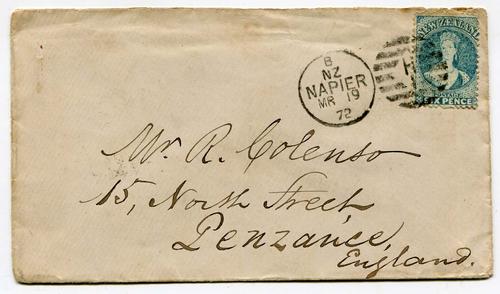 NEW ZEALAND
POSTAGE
SIX PENCE
B
NZ
NAPIER
MR 19
72
Mr. R. Colenso
15, North Street,
Penzance,
England.